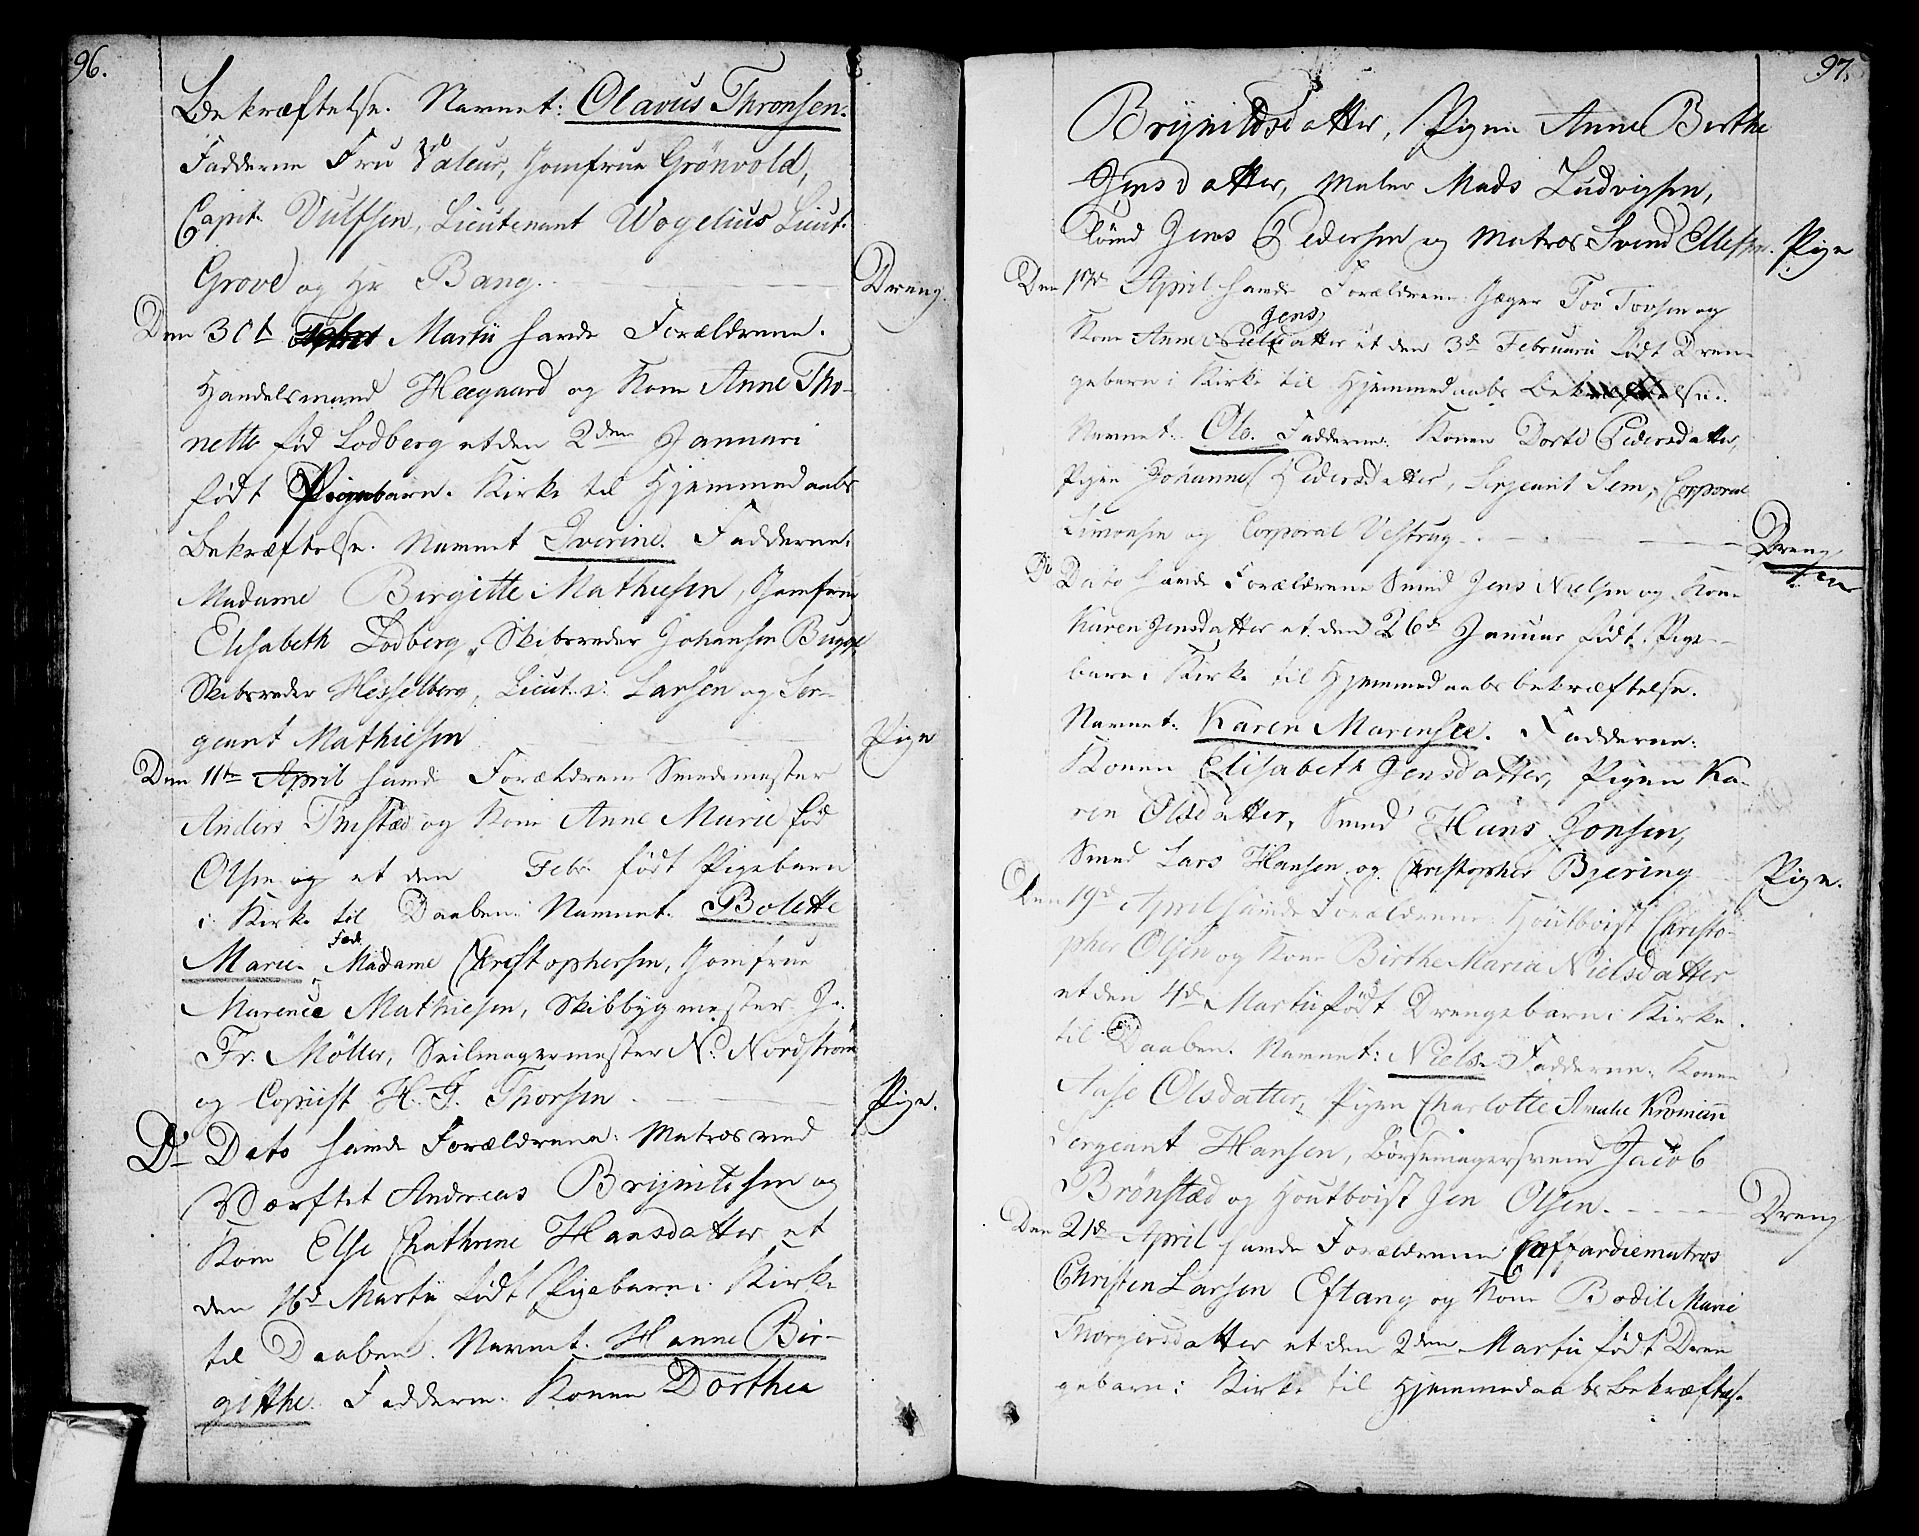 96.
Bekræftelse. Navnet: Olavus Thronsen.
Fadderne Fru Valeur, Jomfrue Grönvold,
Capit. Vulfsen, Lieutenant Wogelius Lieut.
Grove og Hr Bang. Dreng.
Den 30t Martii havde Forældrene.
Handelsmand Heegaard og Kone Anne Tho-
nette fød Lodberg et den 2den Januari
født Pigebarn. Kirke til Hjemmedaabs
Bekræftelse. Navnet Iverine. Fadderne:
Madame Birgitte Mathiesen, Jomfrue
Elisabeth Lodberg, Skibsreder Johansen Bugge
Skibsreder Hesselberg, Lieut. v: Larsen og Ser-
geant Mathiesen Pige
Den 11te April havde Forældrene Smedemester
Anders og Kone Anne Marie fød
Olsen og et den Febr. født Pigebarn
i Kirke til Daaben. Navnet. Bolette
Marie. Fad. Madame Christophersen, Jomfrue
Marence Mathiesen, Skibbygmester J.
Fr. Möller, Seilmagermester N. Nordström
og Copiist H. J. Thorsen. Pige.
Do Dato havde Forældrene: Matros ved
Værftet Andreas Brynildsen og
Kone Else Chathrine Hansdatter et
den 16d Martii født Pigebarn i Kirke
til Daaben. Navnet. Hanne Bir-
githe. Fadderne. Konen Dorthea
97.
Brynildsdatter, Pigen Anne Birthe
Jensdatter, Maler Mads Ludvigsen,
Jens Pedersen og Matros Svend Ellefsen. Pige
Den 17de April havde Forældrene Jæger Tov Tovsen og
Jens
Kone Anne datter et den 3de Februarii født Dren-
gebarn i Kirke til Hjemmedaabs Bekræftelse.
Navnet. Ole. Fadderne. Konen Dorte Pedersdatter,
Pigen Johanne Pedersdatter, Sergeant Sem, Corporal
Simonsen og Corporal Vestrug. Dreng
Do Dato havde Forældrene Smed Jens Nielsen og Kone
Karen Jensdatter et den 26de Januar født Pige-
barn i Kirke til Hjemmedaabsbekræftelse.
Navnet. Karen Marensee. Fadderne:
Konen Elisabeth Jensdatter, Pigen Ka-
ren Olsdatter, Smed Hans Jonsen,
Smed Lars Hansen og Christopher Bjering Pige.
Den 19de April havde Forældrene Houtboist Christo-
pher Olsen og Kone Birthe Maria Nielsdatter
et den 4de Martii født Drengebarn i Kirke
til Daaben. Navnet: Niels. Fadderne. Konen
Aase Olsdatter, Pigen Charlotte Amalie Kromann
Sergeant Hansen, Börsemagersvend Jacob
Brønstæd og Houtboist Jen Olsen. Dreng
Den 21de April havde Forældrene Coffardiematros
Christen Larsen Eftang og Kone Bodil Marie
Thorgersdatter et den 2den Martii født Dren
gebarn i Kirke til Hjemmedaabs Bekræftel-